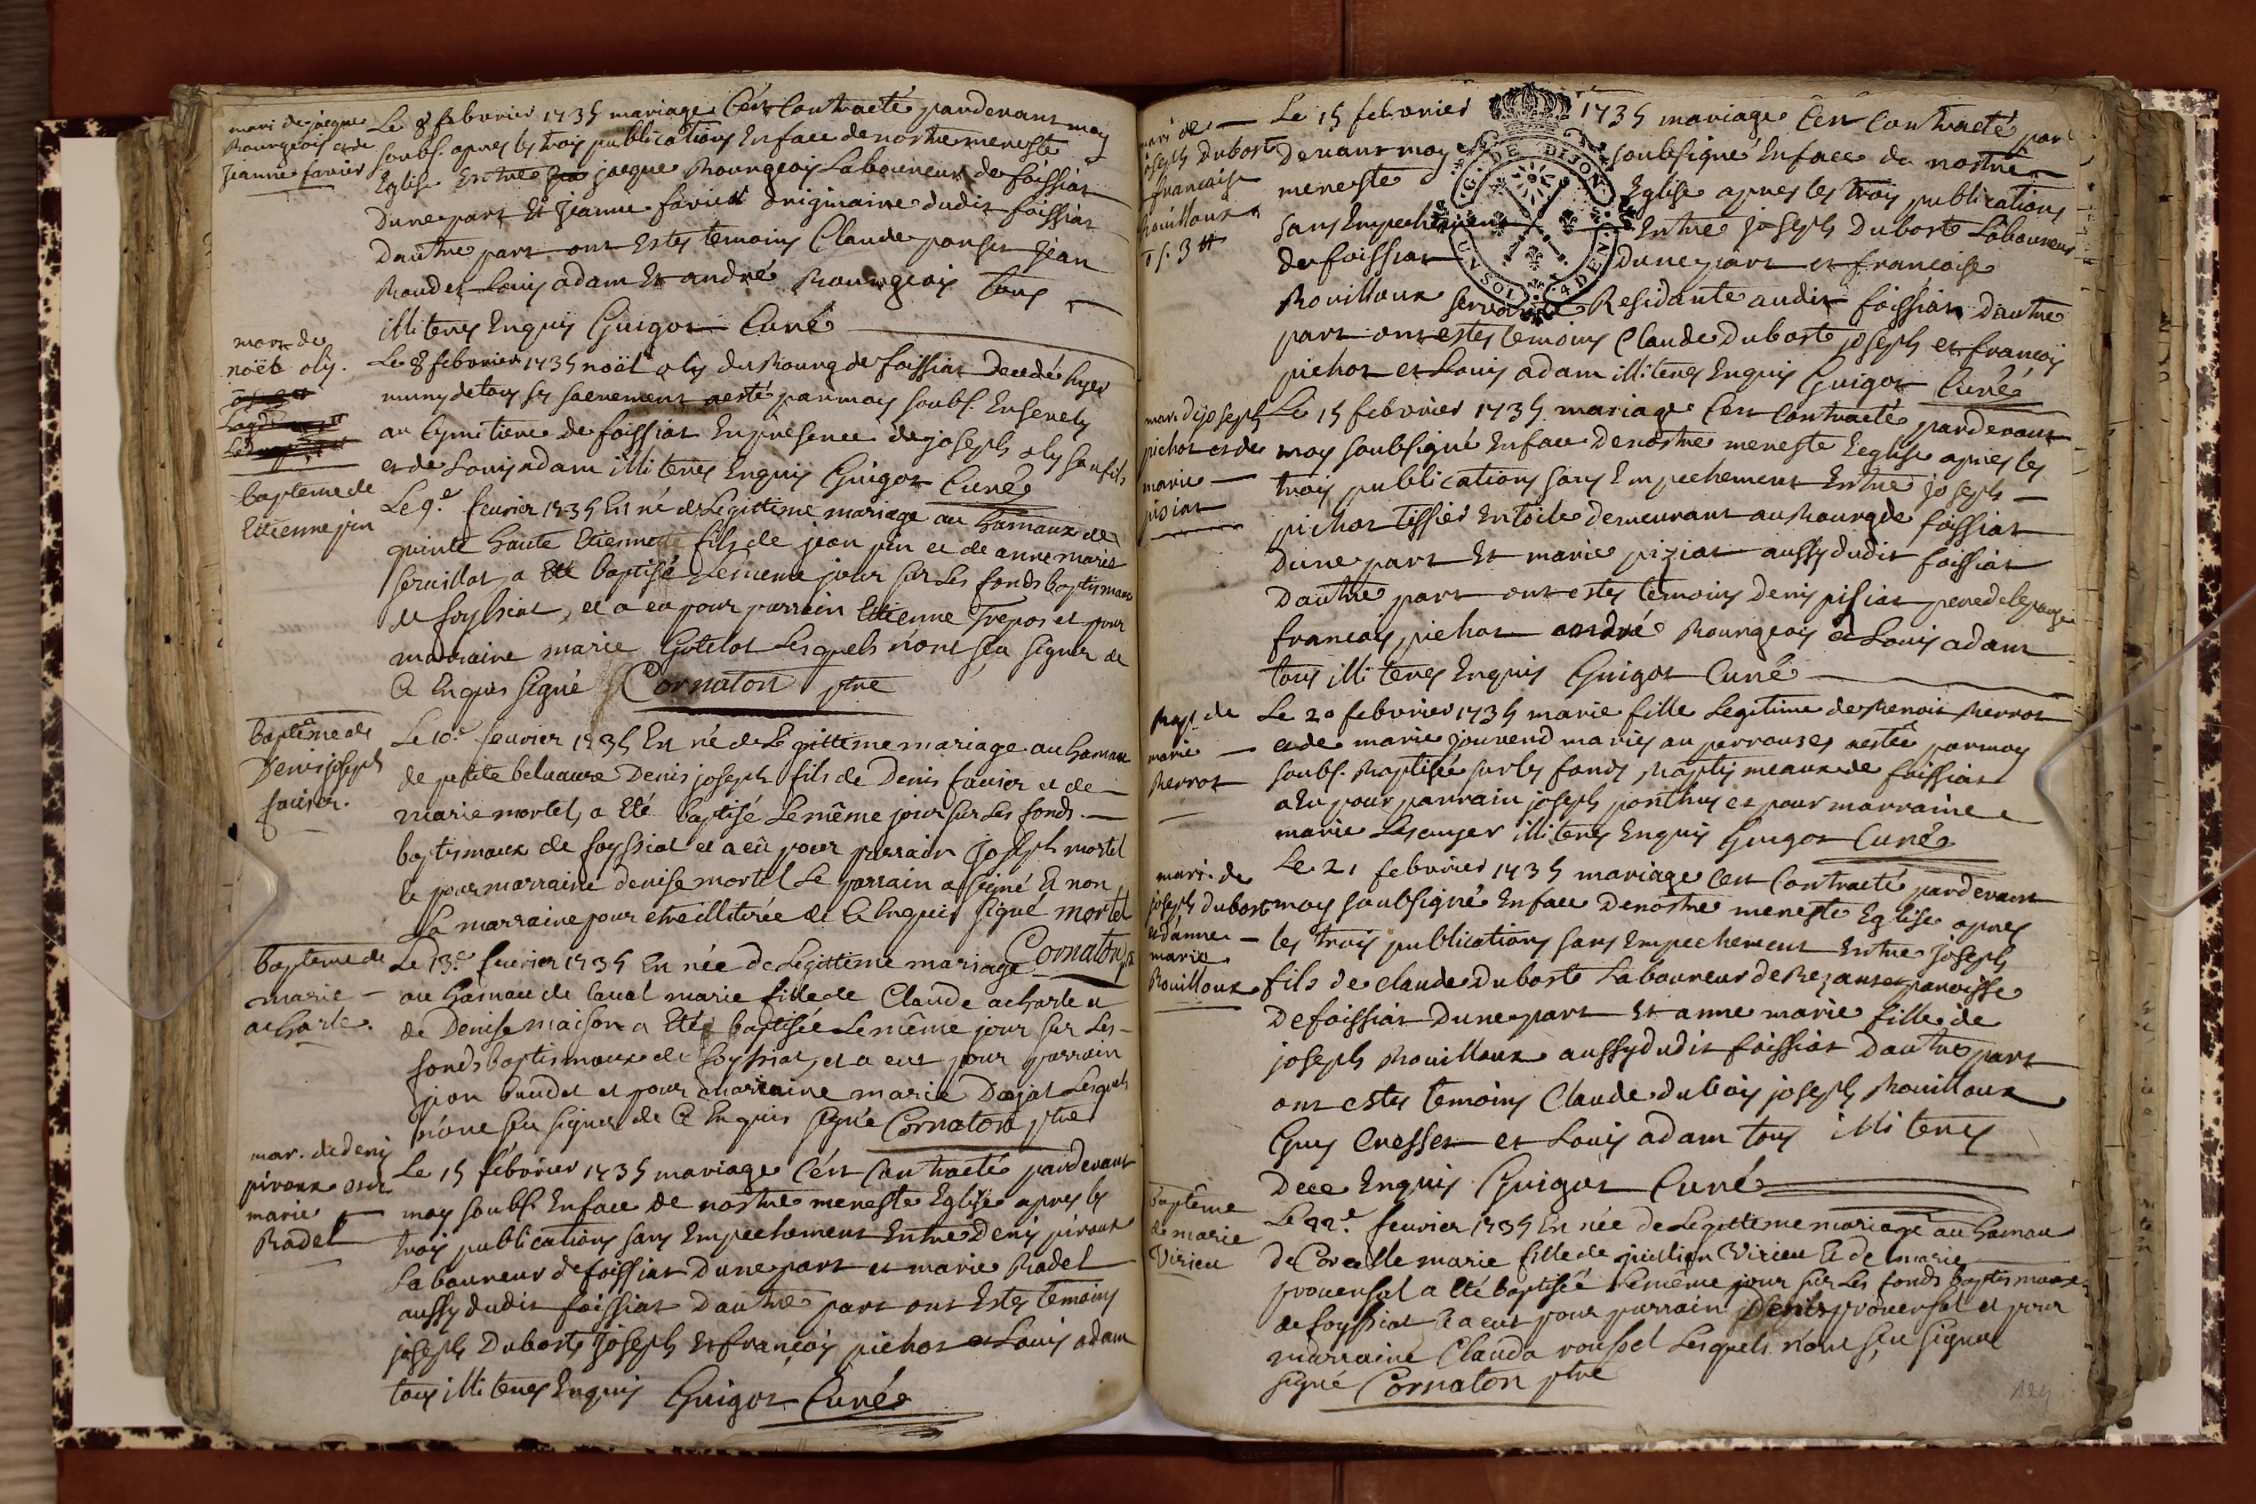 mari de jacque
Bourgeois et de
Jeanne favier
Le 8 febvrier 1735 mariage C'est Contracté pardevant moy
soubs. apres les trois publications En face de nostre mereste
Eglise Entre jacque Bourgeois Laboureur de foissiat
Dune part Et Jeanne favier originaire dudit foissiat
Dautre part ont Estes temoins Claude ponset Jean
Baudet Louis adam Et andré Bourgeois tous
illiteres Enquis Guigot Curé
mort de
noël oly.
Le 8 febvrier 1735 noël oly du Bourg de foissiat Decedé hyer
muny de tous ses sacrements aesté par moy soubs. Ensevely
au Cymitiere de foissiat En presence de joseph oly son fils
et de Louis adam illiteres Enquis Guigot Curé
bapteme de
Etienne pin
Le 9.e fevrier 1735 Est né de Legittime mariage au hameaux de
quinte haute Etienne fils de jean pin et de anne marie
servillat, a Eté baptisé Le meme jour sur Les fonds baptismaux
de foyssiat, et a eu pour parrein Etienne Trepos et pour
marraine marie Gotelot Lesquels n'ont sçu signer de
Ce Enquis signé Cornaton ptre
baptême de
Denis joseph
favier.
Le 10.e fevrier 1735 Est né de Legittime mariage au hameau
de petite belvavre Denis joseph fils de Denis favier et de
marie mortel, a Eté baptisé Le même jour sur Les fonds
baptismaux de foyssiat et a eû pour parrain Joseph mortel
et pour marraine denise mortel Le parrain a signé Et non
La marraine pour etre illiterée de Ce Enquis signé mortel
Cornaton ptre
bapteme de
marie
acharle.
Le 13.e fevrier 1735 Est née de Legittime mariage
au hameau de Laval marie fille de Claude acharle et
de Denise maison a Eté baptisée Le même jour sur Les
fonds baptismaux de foyssiat, et a eut pour parrain
jean baudet et pour marraine marie Dajat Lesquels
n'ont sçu signer de Ce Enquis signé Cornaton ptre
mar. de denis
piroux et de
marie
Radel
Le 15 fébvrier 1735 mariage C'est Contracté pardevant
moy soubs. En face de nostre mereste Eglise apres les
trois publications sans Empechement Entre Denis piroux
Laboureur de foissiat Dune part et marie Radel
aussy dudit foissiat Dautre part ont Estes temoins
joseph Dubost, joseph et françois pichot et Louis adam
tous illiteres Enquis Guigot Curé
mari de
joseph Dubost
francoise
Rouilloux
Le 15 febvrier 1735 mariage C'est Contracté par
Devant moy soubsigné En face de nostre
mereste Eglise apres les trois publications
sans Empechement Entre Joseph Dubost Laboureur
de foissiat Dune part et francoise
Rouilloux servante Residante audit foissiat Dautre
part ont estes temoins Claude Dubost joseph et françois
pichot et Louis adam illiteres Enquis Guigot Curé
G. DE DIJON
mar. de joseph
pichot et de
marie
pisiat
Le 15 febvrier 1735 mariage C'est Contracté pardevant
moy soubsigné En face de nostre mereste Eglise apres les
trois publications sans Empechement Entre joseph
pichot tissier En toile demeurant au Bourg de foissiat
Dune part Et marie piziat aussy dudit foissiat
Dautre part ont estes temoins Denis pisiat pere de
francois pichot andré Bourgeois et Louis adam
tous illiteres Enquis Guigot Curé
Bapt. de
marie
Berrot
Le 20 febvrier 1735 marie fille Legitime de Benoit Berrot
et de marie jouvend mariés au perrouzes aestée par moy
soubs. Baptisée sur les fonds Baptismeaux de foissiat
a Eu pour parrain joseph ponthus et pour marraine
marie Lecuyer illiteres Enquis Guigot Curé
mari. de
joseph dubost
et danne
marie
Rouilloux
Le 21 febvrier 1735 mariage C'est Contracté pardevant
moy soubsigné En face De nostre mereste Eglise apres
les trois publications sans Empechement Entre Joseph
fils de Claude Dubost Laboureur de Rezansey paroisse
De foissiat Dune part Et anne marie fille de
joseph Rouilloux aussy dudit foissiat Dautre part
ont estes temoins Claude dubois joseph Rouilloux
Guy Cresset et Louis adam tous illiteres
De ce Enquis Guigot Curé
baptême
de marie
Virieu
Le 22.e fevrier 1735 Est née de Legittime mariage au hameau
de Corcelle marie fille de Virieu Et de marie
provensel a Eté baptisée Le même jour sur Les fonds baptismaux
de foyssiat Et a eut pour parrain Denis provensel et pour
marraine Clauda roussel Lesquels n'ont sçu signer
signé Cornaton ptre